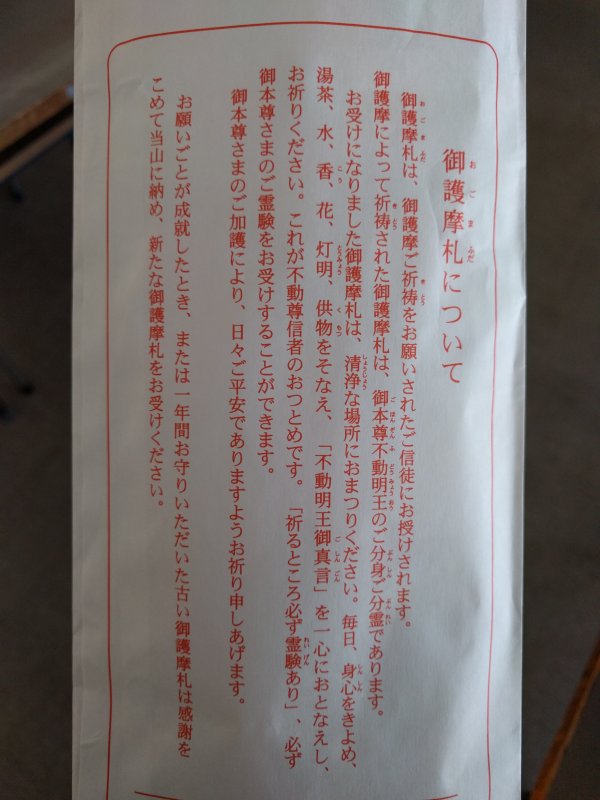 御護摩札について
御護摩札は、御護摩ご祈祷をお願いされたご信徒にお授けされます。
御護摩によって祈祷された御護摩札は、御本尊不動明王のご分身ご分霊であります。
お受けになりました御護摩札は、清浄な場所におまつりください。毎日、身心をきよめ、
湯茶、水、香、花、灯明、供物をそなえ、「不動明王御真言」を一心におとなえし、
お祈りください。これが不動尊信者のおつとめです。「祈るところ必ず霊験あり」、必ず
御本尊さまのご霊験をお受けすることができます。
御本尊さまのご加護により、日々ご平安でありますようお祈り申しあげます。
お願いごとが成就したとき、または一年間お守りいただいた古い御護摩札は感謝を
こめて当山に納め、新たな御護摩札をお受けください。